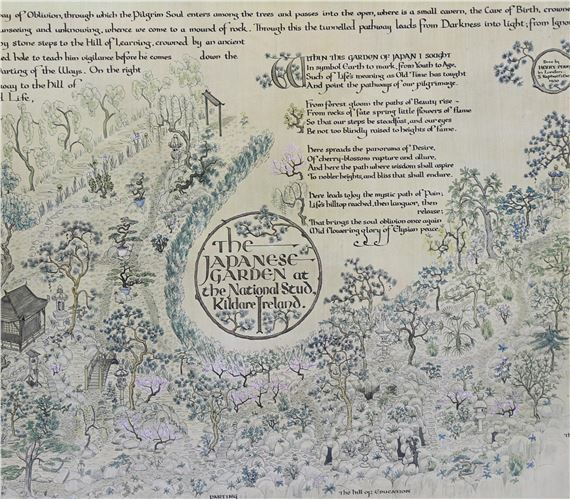 ay of Oblivion, through which the Pilgrim Soul enters among the trees and passes into the open, where is a small cavern, the Cave of Birth, crowne
unseeing and unknowing, whence we come to a mound of rock. Through this the tunnelled pathway leads from Darkness into Light; from Igno
by stone steps to the Hill of Learning, crowned by an ancient
ed hole to teach him vigilance before he comes down the
arting of the Ways. On the right
way to the hill of
l Life,
WITHIN THE GARDEN OF JAPAN I sought
In symbol Earth to mark, from Youth to Age,
Such of Life's meaning as Old Time has taught
And point the pathways of our pilgrimage.
From forest gloom the paths of Beauty rise -
From rocks of fate spring little flowers of flame
So that our steps be steadfast, and our eyes
Be not too blindly raised to heights of fame.
Here spreads the panorama of Desire,
Of cherry-blossom rapture and allure,
And here the path where wisdom shall aspire
To nobler heights, and bliss that shall endure.
Here leads to Joy the mystic path of Pain;
Life's hilltop reached, then languor, then
release;
That brings the soul oblivion once again
Mid flowering glory of Elysian peace.
The
JAPANESE
GARDEN at
the National Stud,
Kildare Ireland.
PARTING
The Hill of EDUCATION